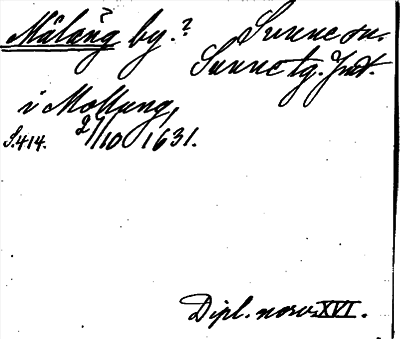 Målång by.? Sunne sn.
Sunne tg. Jmt.
i Mollung,
S.414. 27/10 1631.
Dipl. norv. XVI.